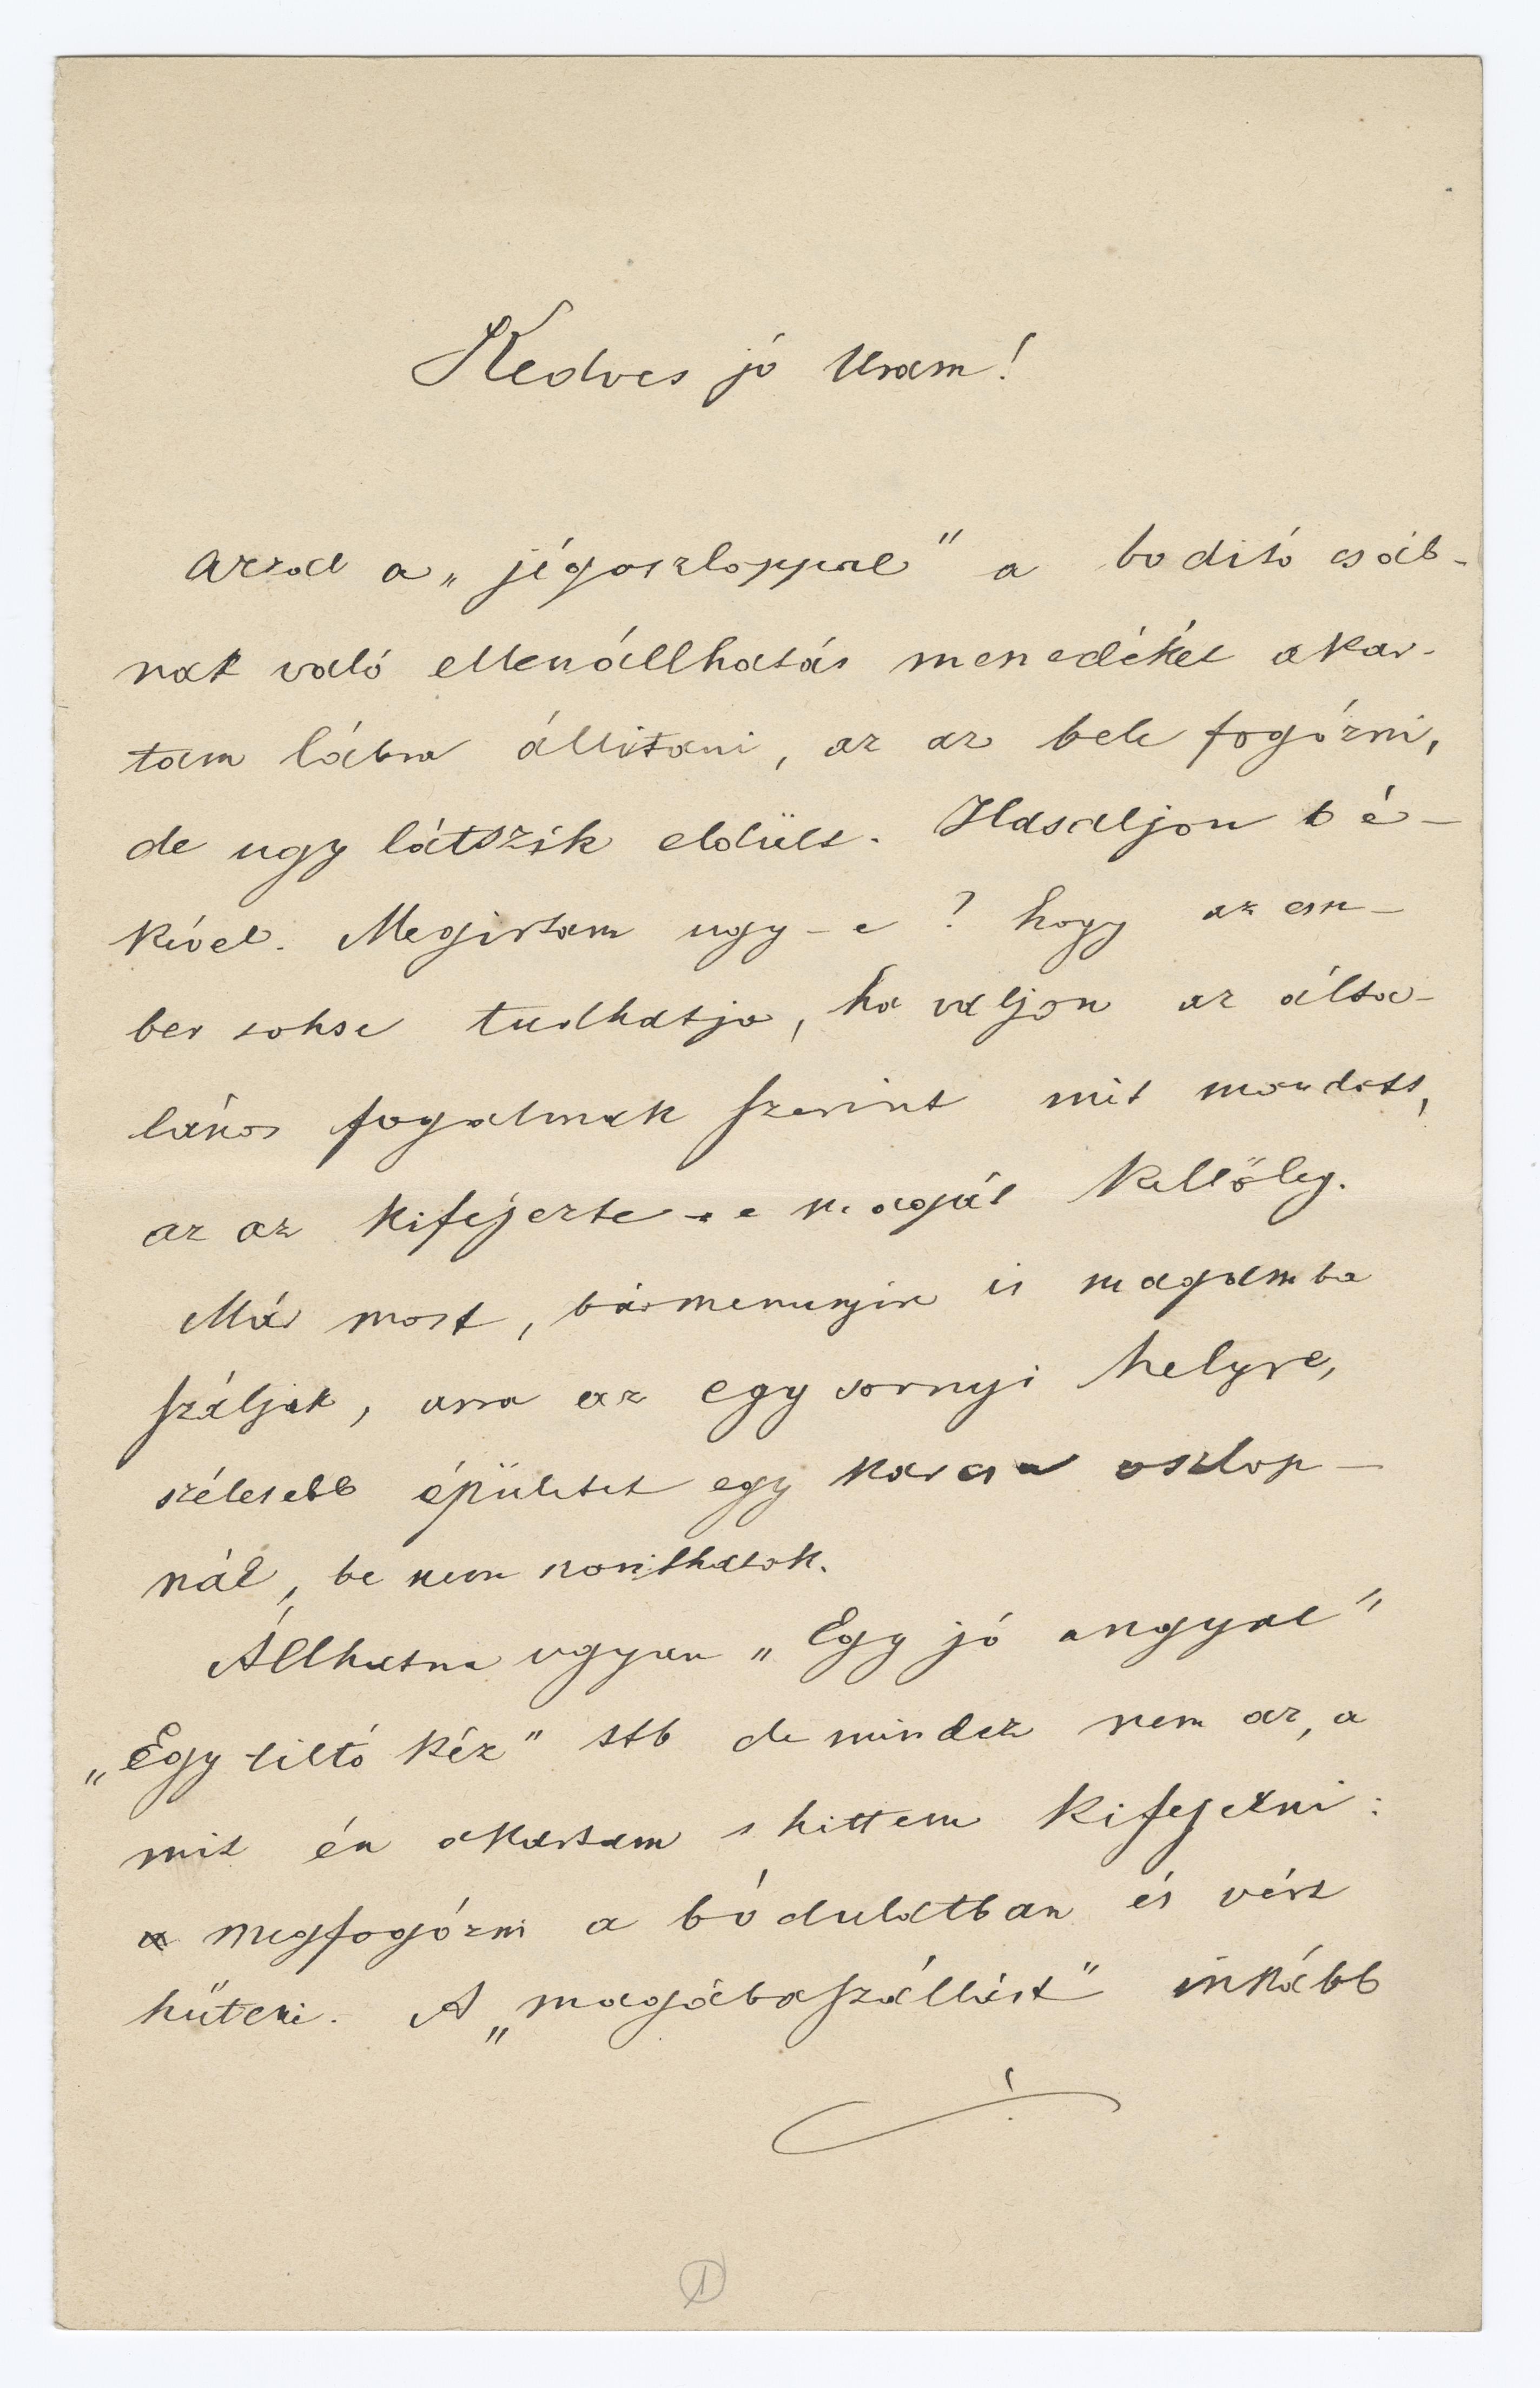 Kedves jó Uram!
azzal a „jégoszloppal" a boditó csáb-
nak való ellenállhatás menedékét akar-
tam lábra állitani, az az bele fogózni,
de ugy látszik eldült. Hasaljon bé-
kével. Megirtam ugy-e? hogy az em-
ber sohse tudhatja, ha valjon az álta-
lános fogalmak szerint mit mondott,
az az kifejezte-e magát kellőleg.
Már most, bármennyire is magamba
száljak, arra az egy sornyi helyre,
szélesebb épületet egy karcsu oszlop-
nál, be nem szorithatok.
Állhatna ugyan „Egy jó angyal"
„Egy tiltó kéz" stb de mindez nem az, a
mit én akartam s hittem kifejezni:
megfogózni a bódulatban és vért
hüteni. A „magábaszállást" inkább
1